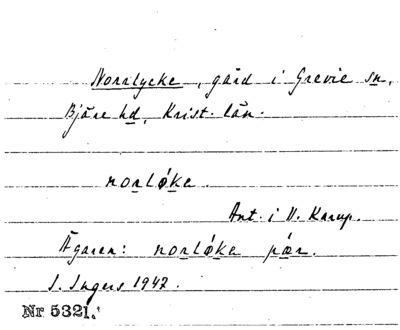 Norrlycke, gård i Grevie sn,
Bjäre hd, Krist. län.
norløke.
Ant. i V. Karup.
Ägaren: norløke pær.
I. Ingers 1942.
Nr 5321.